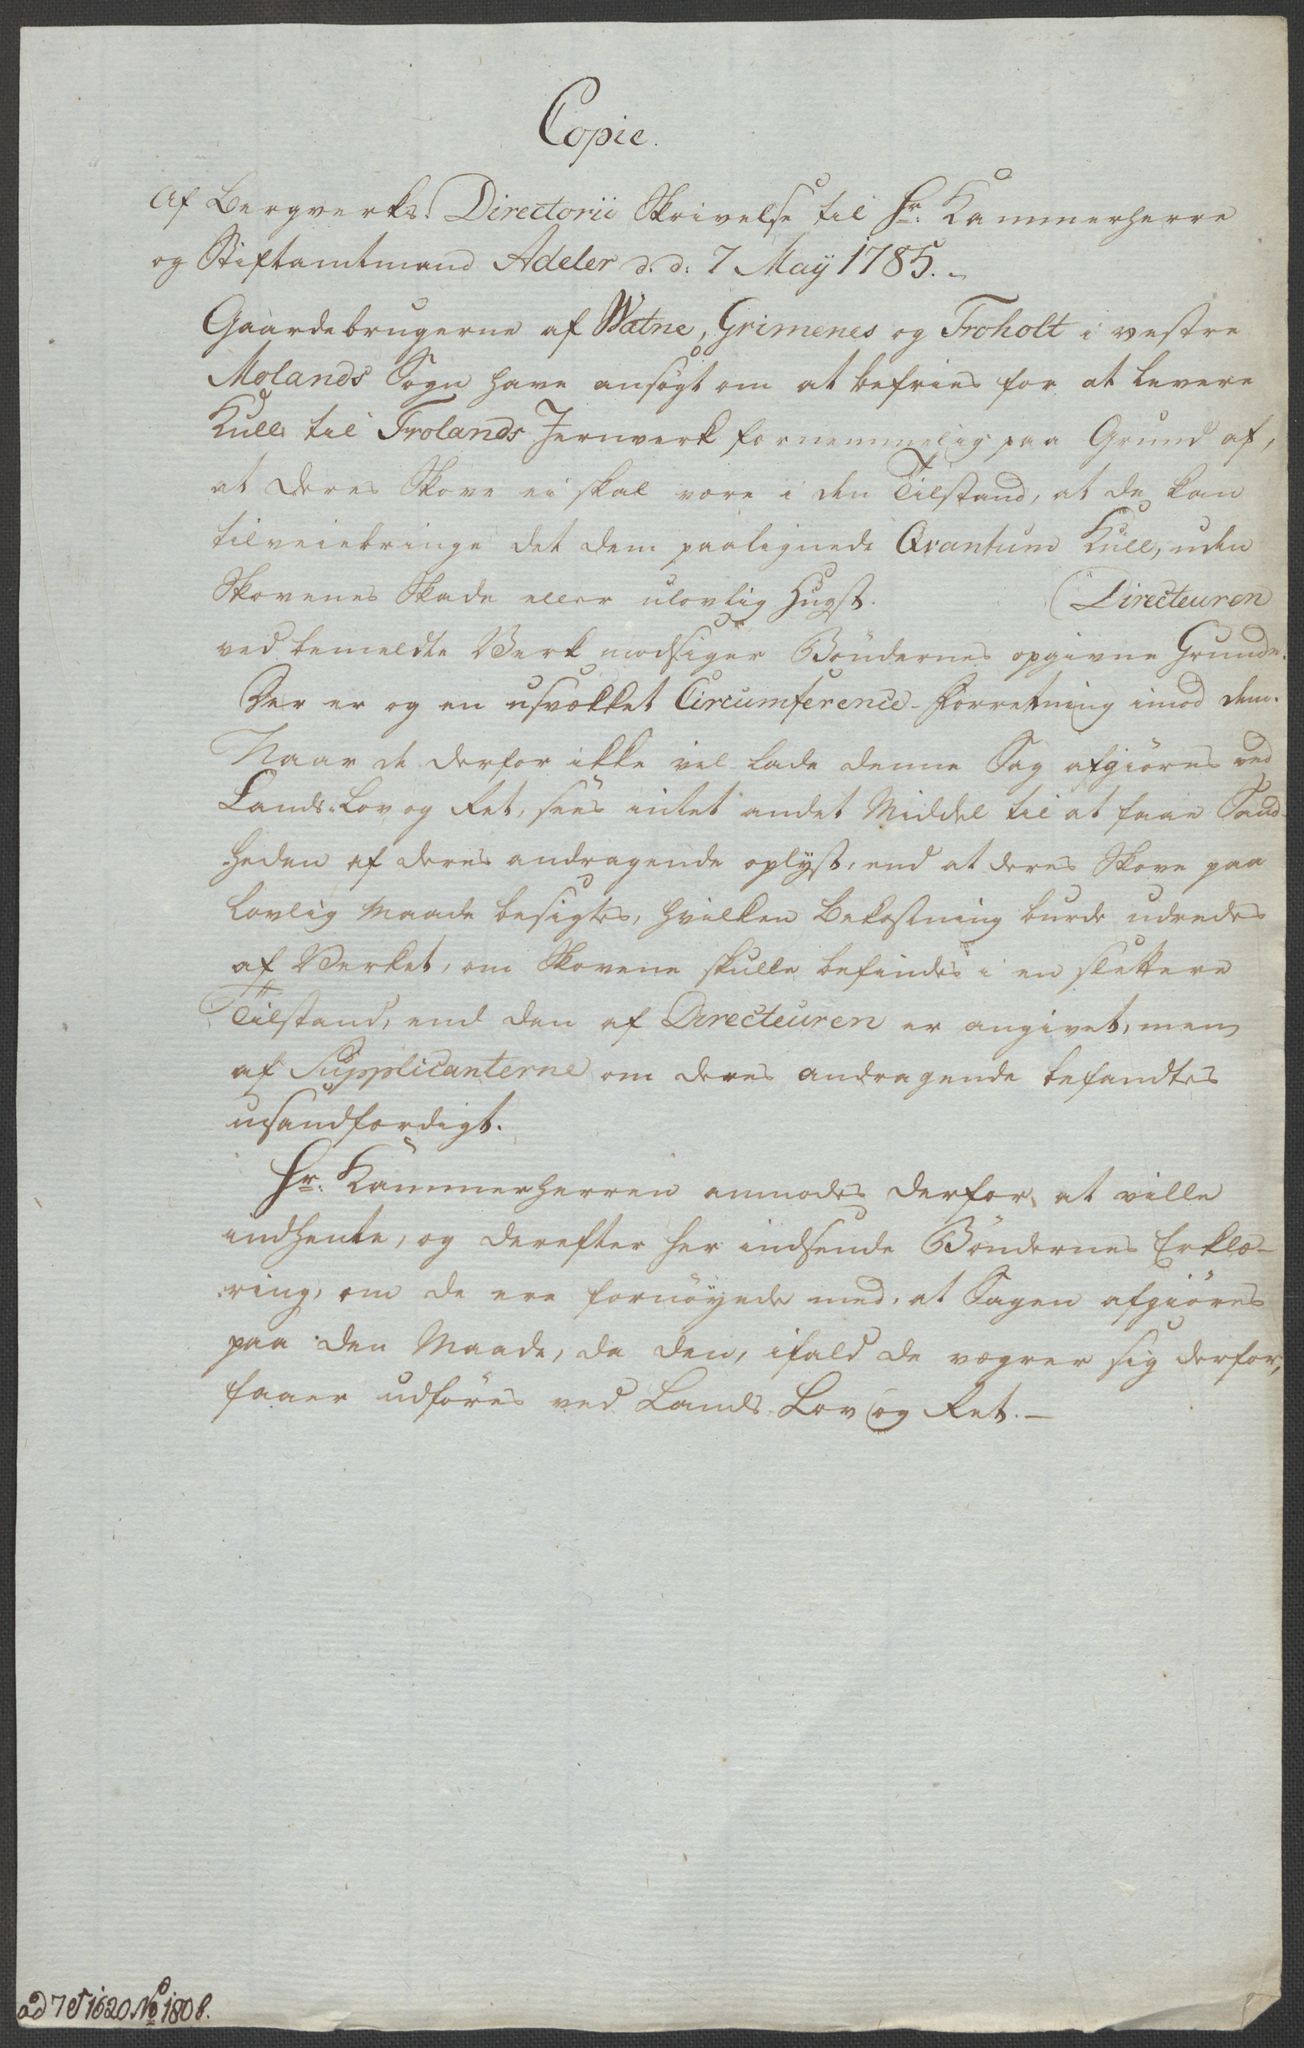 Copie.
Af Bergverks-Directorii Skrivelse til Hr: Kammerherre
og Stiftamtmand Adeler d. d: 7 Maÿ 1785.-
Gaardebrugerne af Watne, Grimenes og Troholt i vestre
Molands Sogn have ansøgt om at befries for at levere
Kull til Frolands Jernverk fornemmelig paa Grund af,
at deres Skove ei skal være i den Tilstand, at de kan
tilveiebringe det dem paalignede Qvantum Kull, uden
Skovenes Skade eller ulovlig Hugst. Directeuren
ved bemeldte Verk modsiger Bøndernes opgivne Grunde.
Der er og en usvækket Circumference-Forretning imod dem.
Naar de derfor ikke vel lade denne Sag afgiøres ved
Lands-Lov og Ret, sees intet andet Middel til at faae Sand-
heden af deres andragende oplyst, end at deres Skove paa
lovlig Maade besigtes, hvilken Bekostning burde udredes
af Verket, om Skovene skulle befindes i en slettere
Tilstand, end den af Directeuren er angivet, men
af Supplicanterne om deres andragende befandtes
usandfærdigt.
Hr: Kammerherren anmodes derfor at ville
indhente, og derefter her indsende Bøndernes Erklæ-
ring, om de ere fornøyede med, at Sagen afgiøres
paa den Maade, da den, ifald de vægrer sig derfor,
faaer udføres ved Lands Lov og Ret.-
ad 7 et 1620 No 1808.